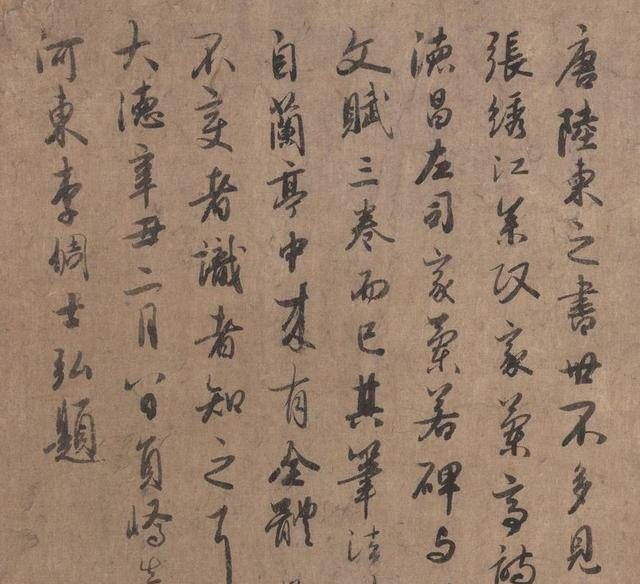 唐陸柬之書世不多見
張綉江叅政家蘭亭詩
德昌左司家蘭若碑与
文賦三卷而已其筆法
自蘭亭中来有全體
不變者識者知之耳
大德辛丑二月八日員嶠真
河東李倜士弘題